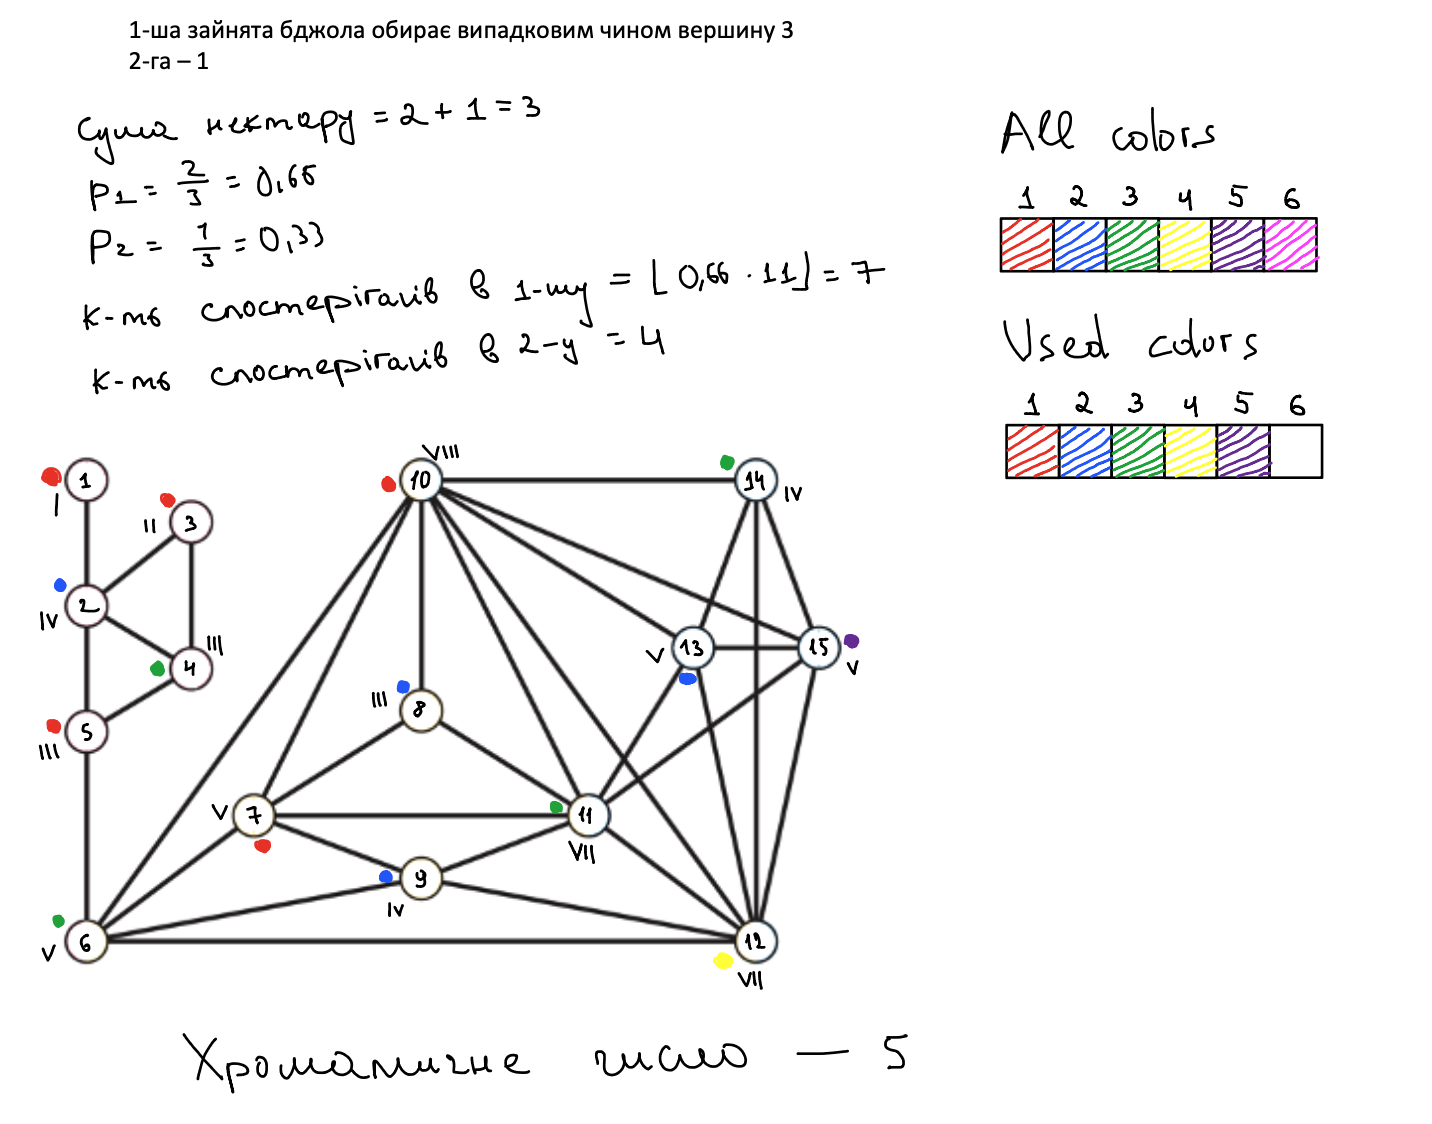 1-ша зайнята бджола обирає випадковим чином вершину 3
2-га – 1
Сума нектару = 2 + 1 = 3
P1 = 2/3 = 0,66
P2 = 1/3 = 0,33
К-ть спостерігачів в 1-шу = ⌊0,66 · 11⌋ = 7
К-ть спостерігачів в 2-у = 4
All colors
1 2 3 4 5 6
Used colors
1 2 3 4 5 6
VIII
1 10 14
I IV
II 3
2
IV
III
4
V 13 15
V
III 8
5
III
V 7 11
VII
9
IV
V 6 12
VII
Хроматичне число — 5